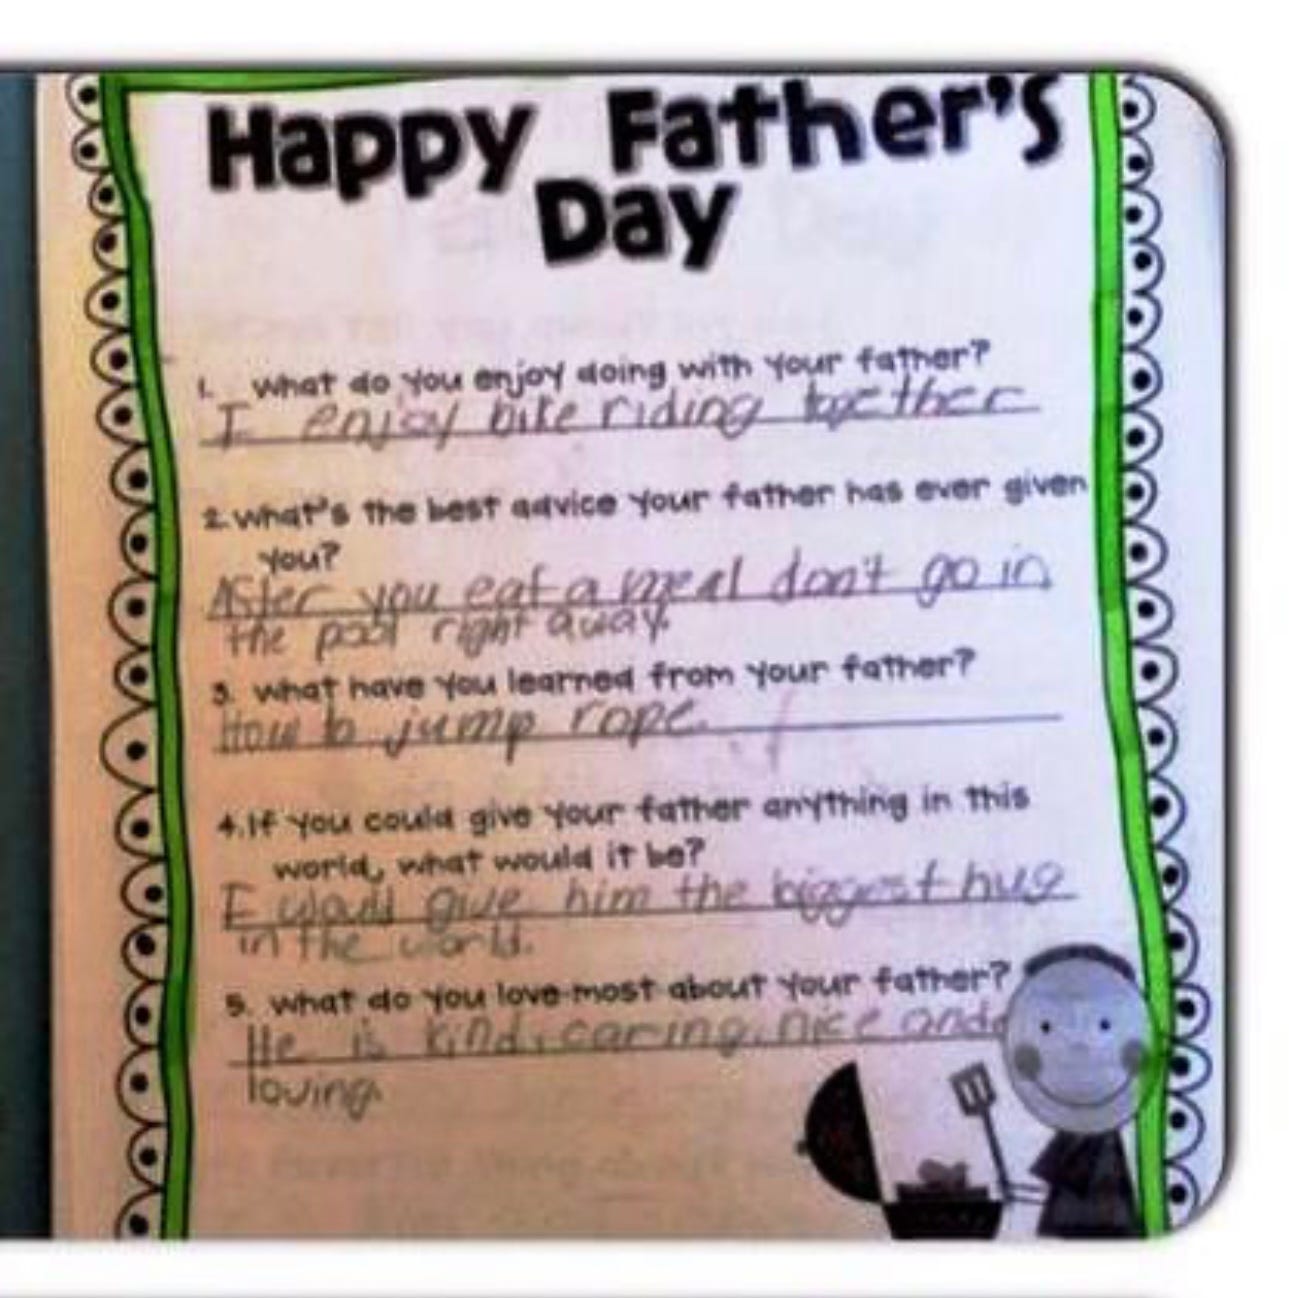 Happy Father's
Day
1. What do you enjoy doing with your father?
I enjoy bike riding together
2. What's the best advice your father has ever given
you?
After you eat a meal don't go in
the pool right away.
3. What have you learned from your father?
How to jump rope.
4. If you could give your father anything in this
world, what would it be?
I would give him the biggest hug
in the world.
5. What do you love most about your father?
He is kind, caring, nice and
loving.